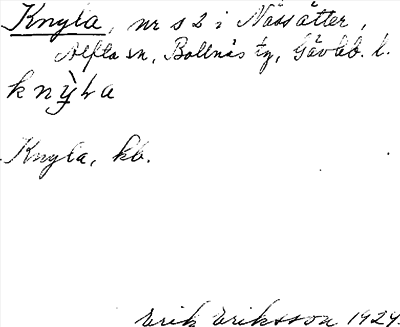 Knyla, nr s 2 i Nässätter,
Alfta sn, Bollnäs tg, Gävleb. l.
Knyla, kb.
Erik Eriksson 1924.